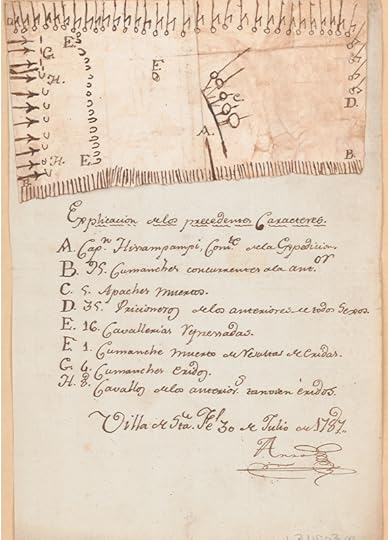 E.
G.
H.
E.
C.
D.
A.
H.
E.
B.
B.
Explicacion de los precedentes Caracteres.
A. Cap.n Hisampampi, Com.te de la Expedicion
B. 95. Cumanches concurrentes a la ant.or
C. 5. Apaches muertos.
D. 35. Pricioneros de los anteriores de todos sexos.
E. 16. Cavallerias Represadas.
F. 1. Cumanche muerto de resultas de eridas.
G. 6. Cumanches eridos.
H. 8. Cavallos de los anterior.s tanvien éridos.
Villa de S.ta Fe 30 de Julio de 1787.
Anza